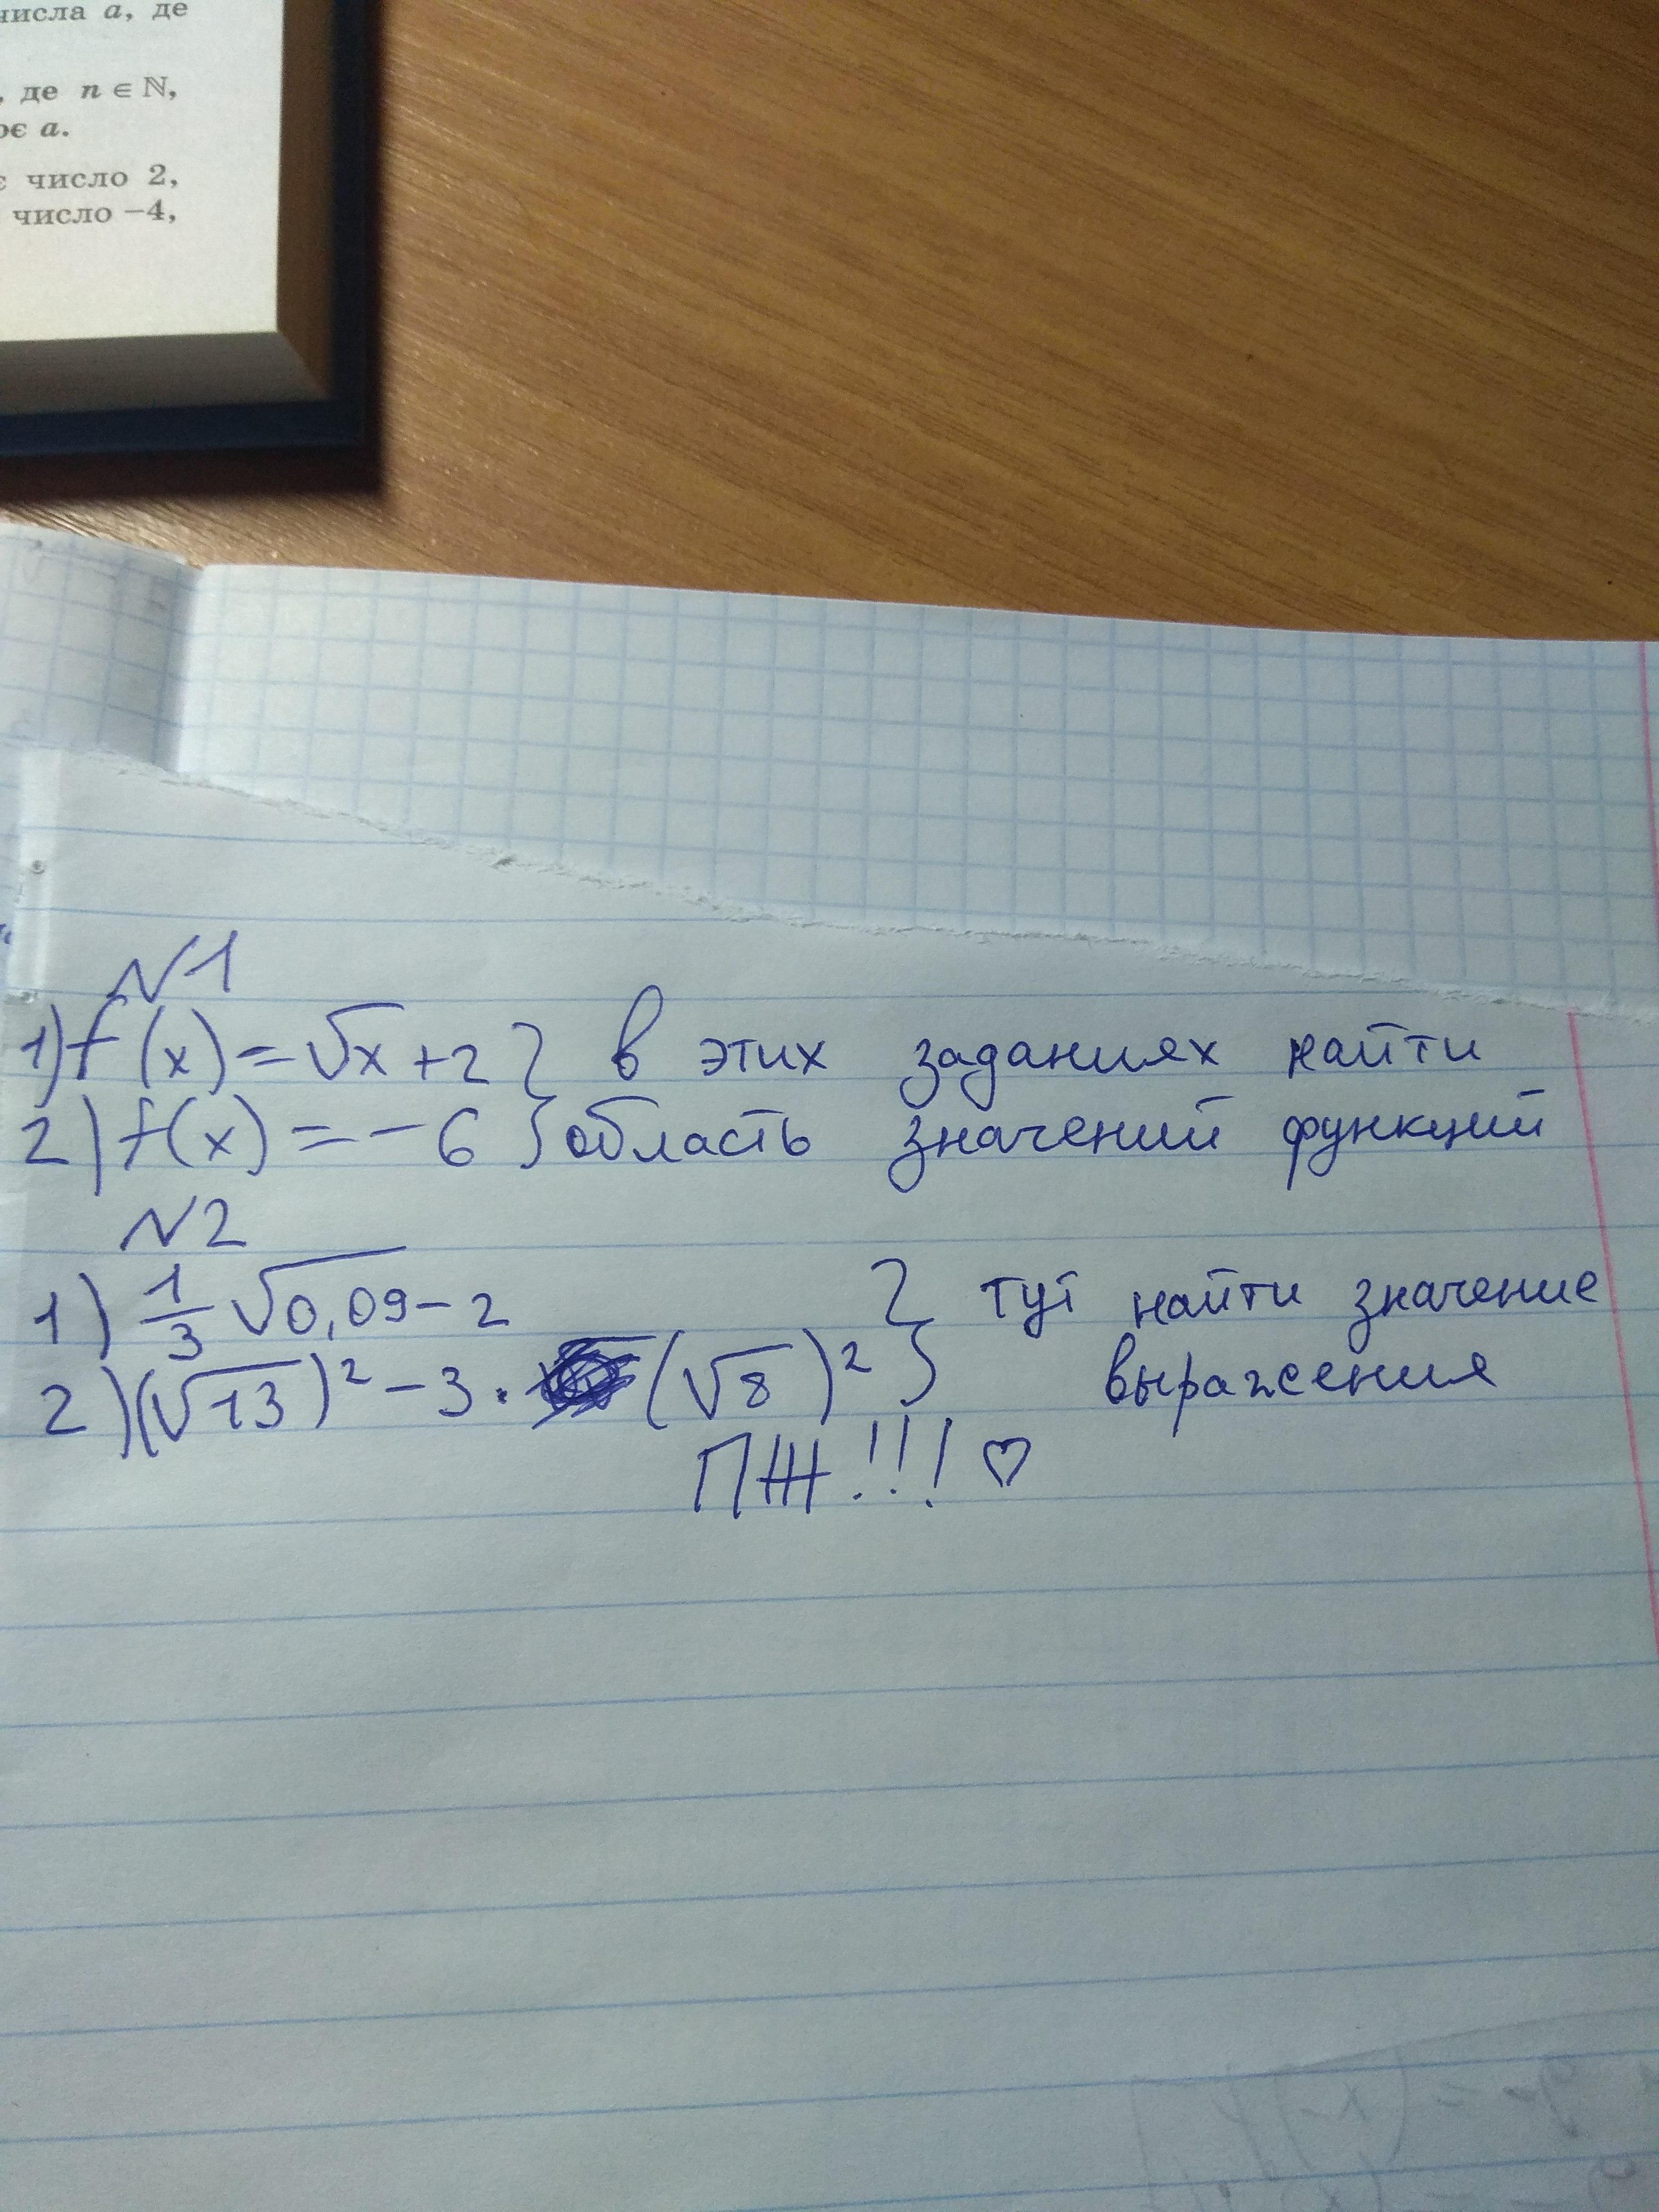 числа a, де
, де n ∈ ℕ,
ює a.
є число 2,
число −4,
N1
1) f(x) = √x + 2 } в этих заданиях найти
2) f(x) = − 6 } область значений функций
N2
1) 1/3 √0,09 − 2 } тут найти значение
2) (√13)² − 3 · (√8)² } выражения
ПЖ!!! ♡